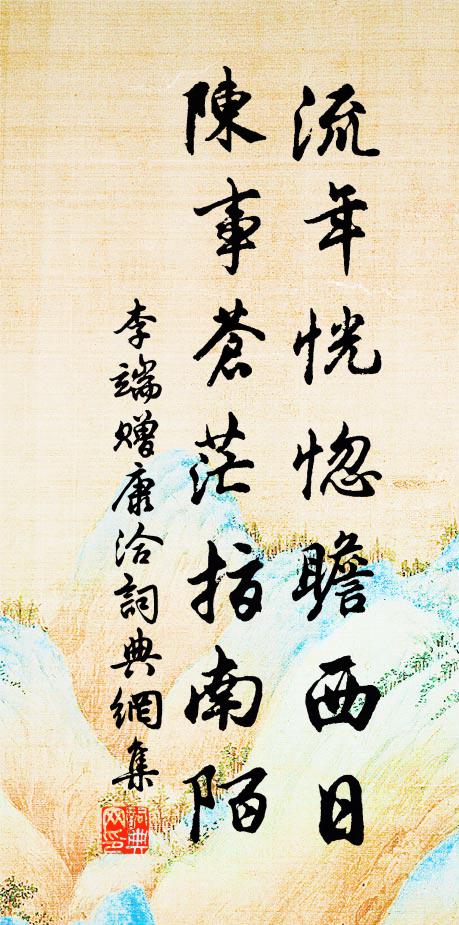 流年恍惚瞻西日
陳事蒼茫指南陌
李端贈康洽詞典網集
詞典網印